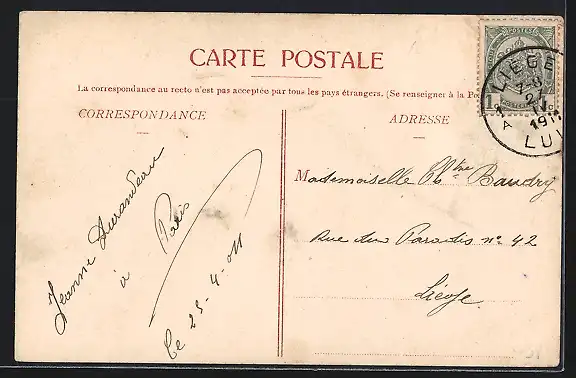 CARTE POSTALE
La correspondance au recto n'est pas acceptée par tous les pays étrangers. (Se renseigner à la Po
CORRESPONDANCE
ADRESSE
POSTES
1
LIÈGE
27
IV
1911
A
LUI
Mademoiselle Baudry
Rue du Paradis no 42
Liége
Jeanne Durandeau
à Paris
le 25-4-011